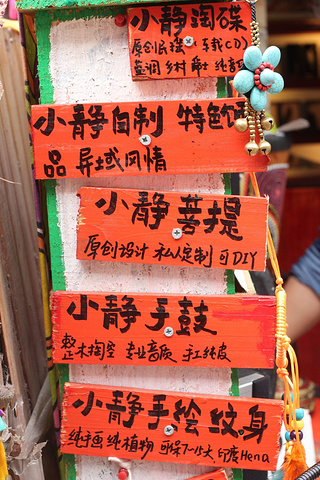 小静淘碟
原创民谣(车载CD)
蓝调 乡村 爵士 纯音
小静自制 特色饰
品 异域风情
小静菩提
原创设计 私人定制 可DIY
小静手鼓
整木掏空 专业音质 手工纯皮
小静手绘纹身
纯手画 纯植物 可保7~15天 印度Hena